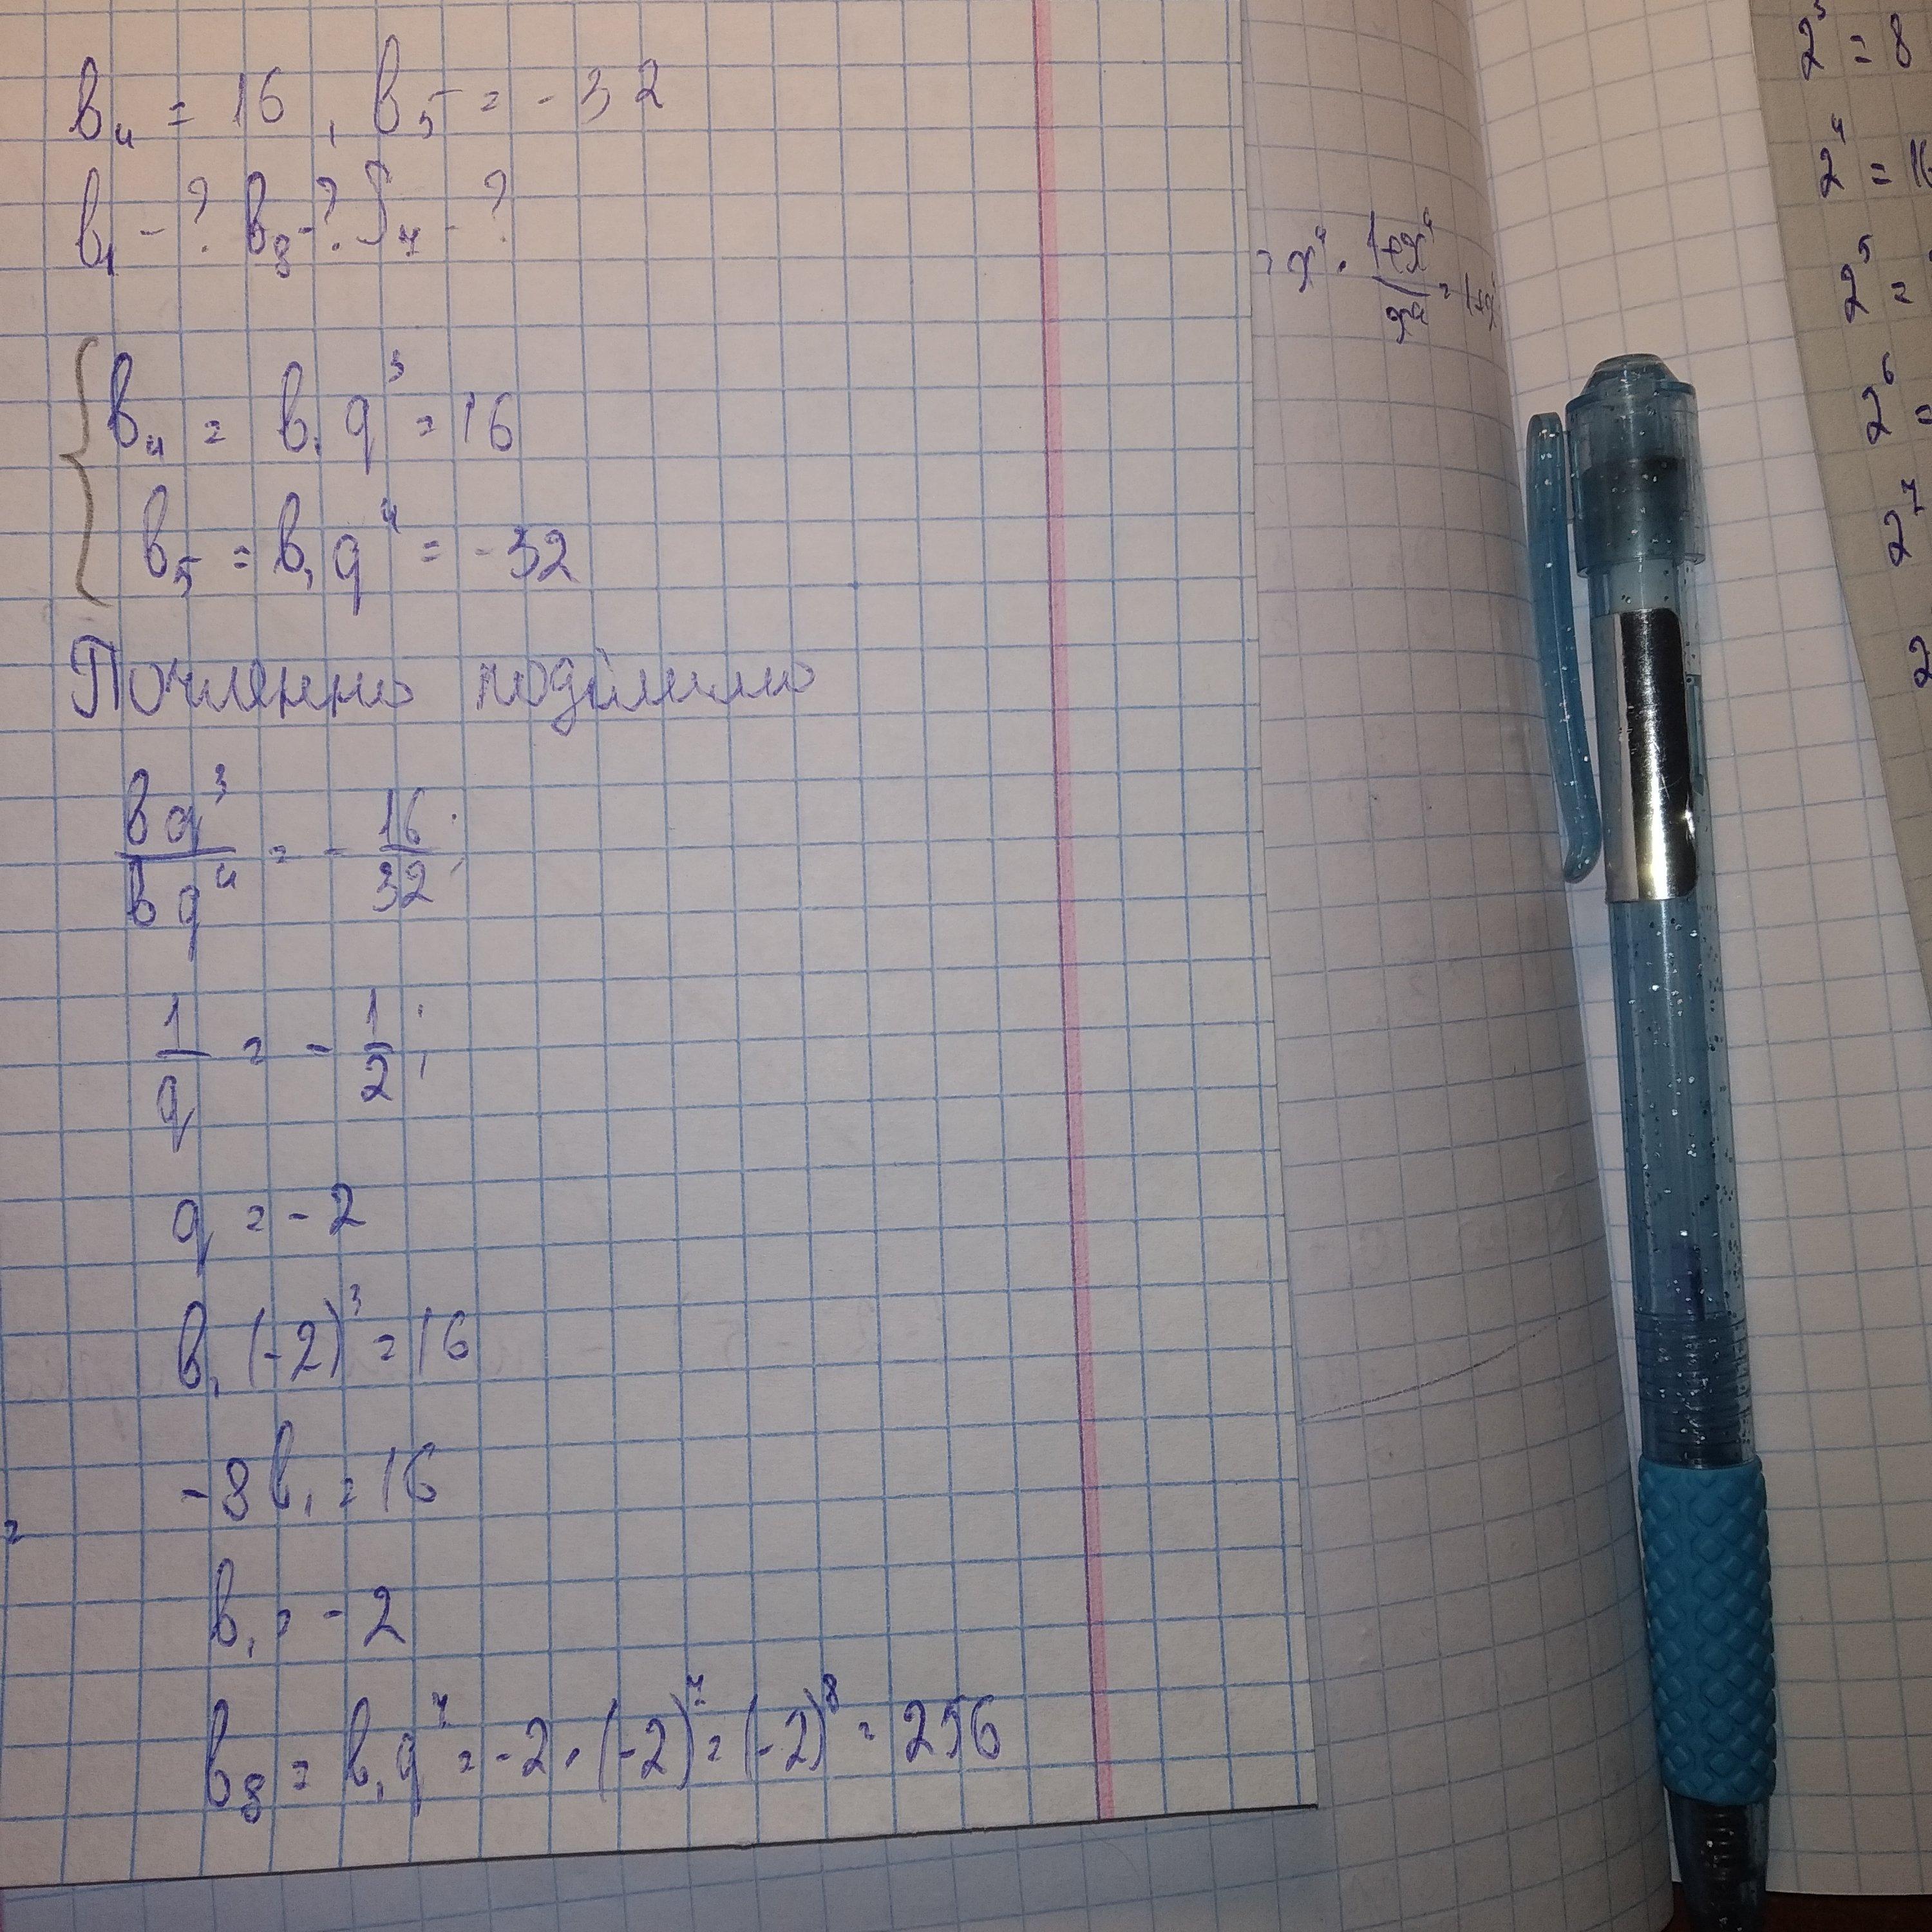 в₄ = 16, в₅ = -32
в₁ - ? в₈ - ? S₇ - ?
в₄ = в₁q³ = 16
в₅ = в₁q⁴ = -32
Почленно поділимо
вq³/вq⁴ = - 16/32;
1/q = - 1/2;
q = -2
в₁(-2)³ = 16
-8в₁ = 16
=
в₁ = -2
в₈ = в₁q⁷ = -2·(-2)⁷ = (-2)⁸ = 256
= x⁴ · 1+x⁴
2³ = 8
2⁴ = 16
2⁵ =
2⁶ =
2⁷
2